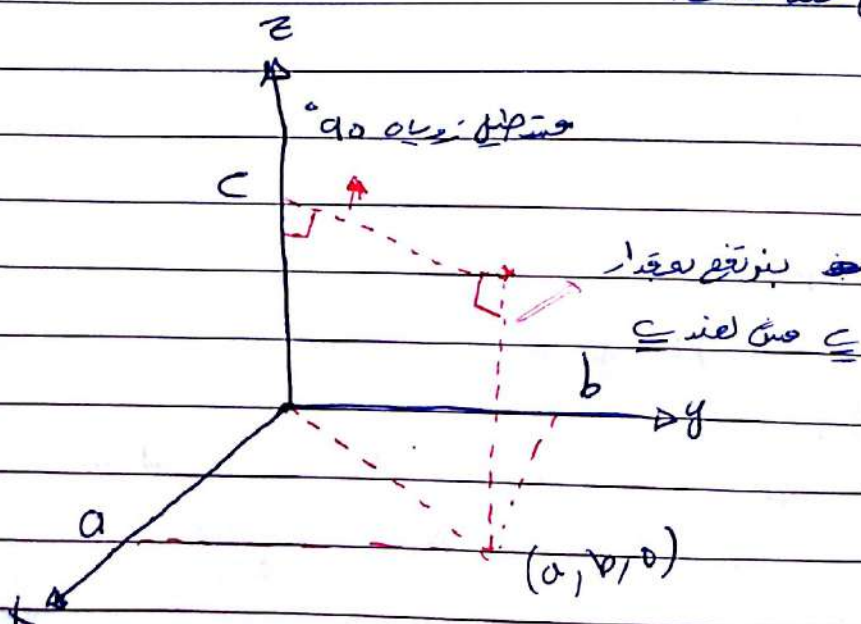 z
مستطيل زوياه 90°
c
بنرتفع بمقدار
c مش لعند c
b
y
a
(a, b, 0)
x